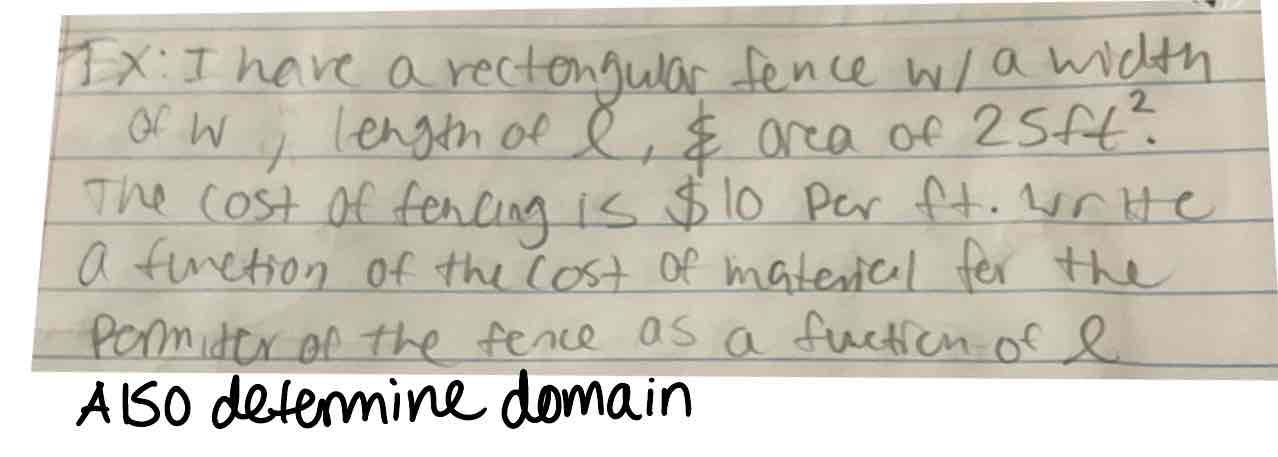 Ex: I have a rectongular fence w/ a width
of w, length of l, & area of 25ft².
The cost of fencing is $10 per ft. write
a function of the cost of material for the
permiter of the fence as a fuction of l
Also determine domain